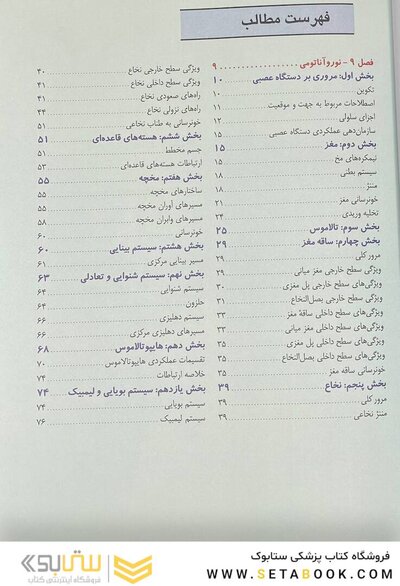 فهرست مطالب
فصل ۹ - نوروآناتومی ۹
بخش اول: مروری بر دستگاه عصبی ۱۰
تکوین ۱۰
اصطلاحات مربوط به جهت و موقعیت ۱۱
اجزای سلولی ۱۲
سازمان‌دهی عملکردی دستگاه عصبی ۱۵
بخش دوم: مغز ۱۵
نیمکره‌های مخ ۱۵
سیستم بطنی ۱۸
مننژ ۱۸
خونرسانی مغز ۲۱
تخلیه وریدی ۲۴
بخش سوم: تالاموس ۲۵
بخش چهارم: ساقه مغز ۲۹
مرور کلی ۲۹
ویژگی سطح خارجی مغز میانی ۲۹
ویژگی‌های سطح خارجی پل مغزی ۳۰
ویژگی‌های سطح خارجی بصل‌النخاع ۳۱
ویژگی‌های سطح داخلی ساقه مغز ۳۳
ویژگی‌های سطح داخلی مغز میانی ۳۳
ویژگی‌های سطح داخلی پل مغزی ۳۵
ویژگی‌های سطح داخلی بصل‌النخاع ۳۵
خونرسانی ساقه مغز ۳۵
بخش پنجم: نخاع ۳۹
مرور کلی ۳۹
مننژ نخاعی ۳۹
ویژگی سطح خارجی نخاع ۴۰
ویژگی سطح داخلی نخاع ۴۱
راه‌های صعودی نخاع ۴۱
راه‌های نزولی نخاع ۴۴
خونرسانی به طناب نخاعی ۵۱
بخش ششم: هسته‌های قاعده‌ای ۵۱
جسم مخطط ۵۱
ارتباطات هسته‌های قاعده‌ای ۵۳
بخش هفتم: مخچه ۵۵
ساختارهای مخچه ۵۵
مسیرهای آوران مخچه ۵۵
مسیرهای وابران مخچه ۵۸
خونرسانی ۶۰
بخش هشتم: سیستم بینایی ۶۰
مسیر بینایی مرکزی ۶۱
بخش نهم: سیستم شنوایی و تعادلی ۶۳
سیستم شنوایی ۶۴
حلزون ۶۴
سیستم دهلیزی ۶۶
مسیرهای دهلیزی مرکزی ۶۶
بخش دهم: هایپوتالاموس ۶۸
تقسیمات عملکردی هایپوتالاموس ۷۰
خلاصه ارتباطات ۷۴
بخش یازدهم: سیستم بویایی و لیمبیک ۷۴
سیستم بویایی ۷۴
سیستم لیمبیک ۷۶
ستابوک
فروشگاه اینترنتی کتاب
فروشگاه کتاب پزشکی ستابوک
WWW.SETABOOK.COM